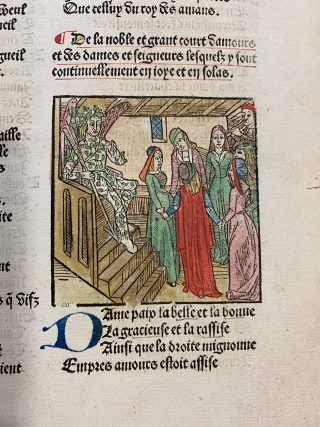 Que cellup du roy des amans.
De la noble et grant court damours
et des dames et seigneurs lesquelz y sont
continuellement en ioye et en solas.
Dame paix la belle et la bonne
La gracieuse et la rassise
Ainsi que la droite mignonne
Empres amours estoit assise